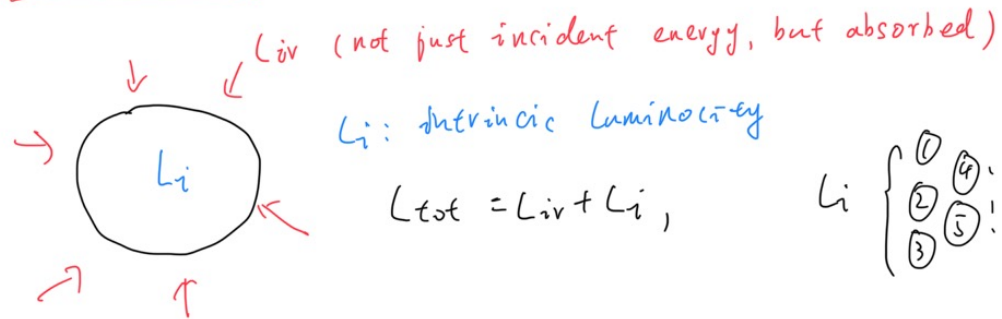 Lir (not just incident energy, but absorbed)
Li
Li: intrincic luminocity
Ltot = Lir + Li,
Li { ① ② ③ ④ ⑤